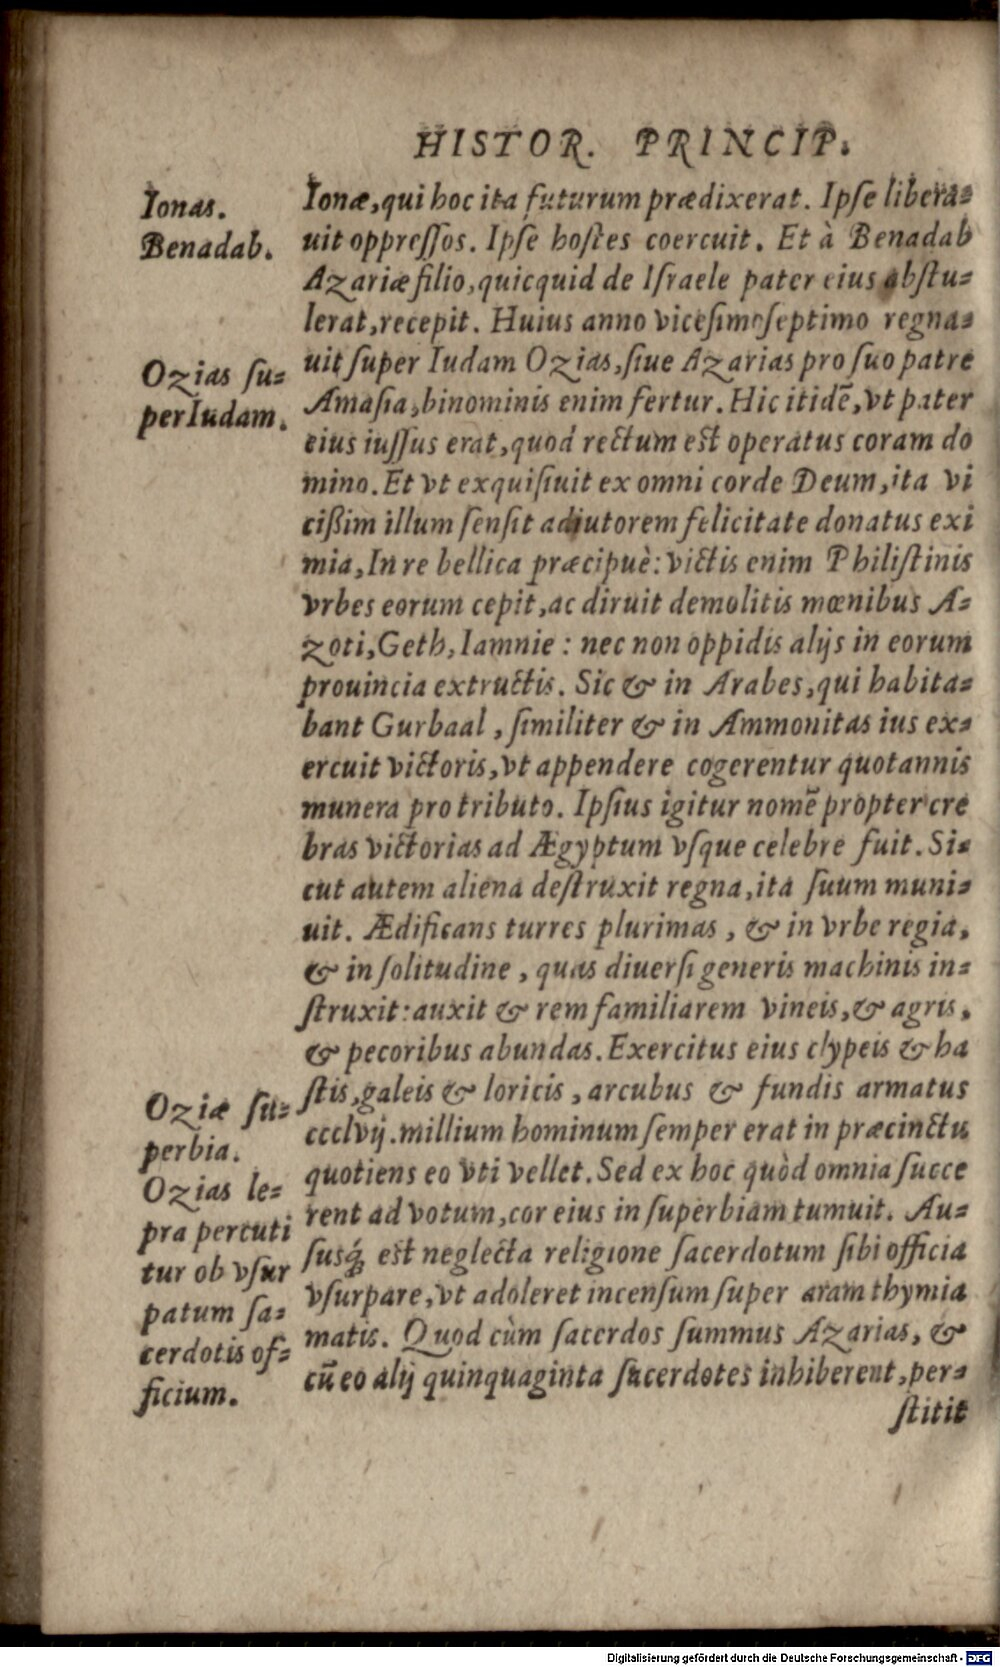 HISTOR. PRINCIP.
Ionas.
Benadab.
Ozias su-
per Iudam.
Oziæ su-
perbia.
Ozias le-
pra percuti
tur ob vsur
patum sa-
cerdotis of-
ficium.
Ionæ, qui hoc ita futurum prædixerat. Ipse libera-
uit oppressos. Ipse hostes coercuit. Et à Benadab
Azariæ filio, quicquid de Israele pater eius abstu-
lerat, recepit. Huius anno vicesimoseptimo regna-
uit super Iudam Ozias, siue Azarias pro suo patre
Amasia, binominis enim fertur. Hic itidē, vt pater
eius iussus erat, quod rectum est operatus coram do
mino. Et vt exquisiuit ex omni corde Deum, ita vi
cißim illum sensit adiutorem felicitate donatus exi
mia, In re bellica præcipuè: victis enim Philistinis
vrbes eorum cepit, ac diruit demolitis mœnibus A-
zoti, Geth, Iamnie : nec non oppidis alijs in eorum
prouincia extructis. Sic & in Arabes, qui habita-
bant Gurbaal, similiter & in Ammonitas ius ex-
ercuit victoris, vt appendere cogerentur quotannis
munera pro tributo. Ipsius igitur nomē propter cre
bras victorias ad Ægyptum vsque celebre fuit. Si-
cut autem aliena destruxit regna, ita suum muni-
uit. Ædificans turres plurimas, & in vrbe regia,
& in solitudine, quas diuersi generis machinis in-
struxit: auxit & rem familiarem vineis, & agris,
& pecoribus abundas. Exercitus eius clypeis & ha
stis, galeis & loricis, arcubus & fundis armatus
ccclvij. millium hominum semper erat in præcinctu
quotiens eo vti vellet. Sed ex hoc quòd omnia succe
rent ad votum, cor eius in superbiam tumuit. Au-
susq́; est neglecta religione sacerdotum sibi officia
vsurpare, vt adoleret incensum super aram thymia
matis. Quod cùm sacerdos summus Azarias, &
cū eo alij quinquaginta sacerdotes inhiberent, per-
stitit
Digitalisierung gefördert durch die Deutsche Forschungsgemeinschaft - DFG